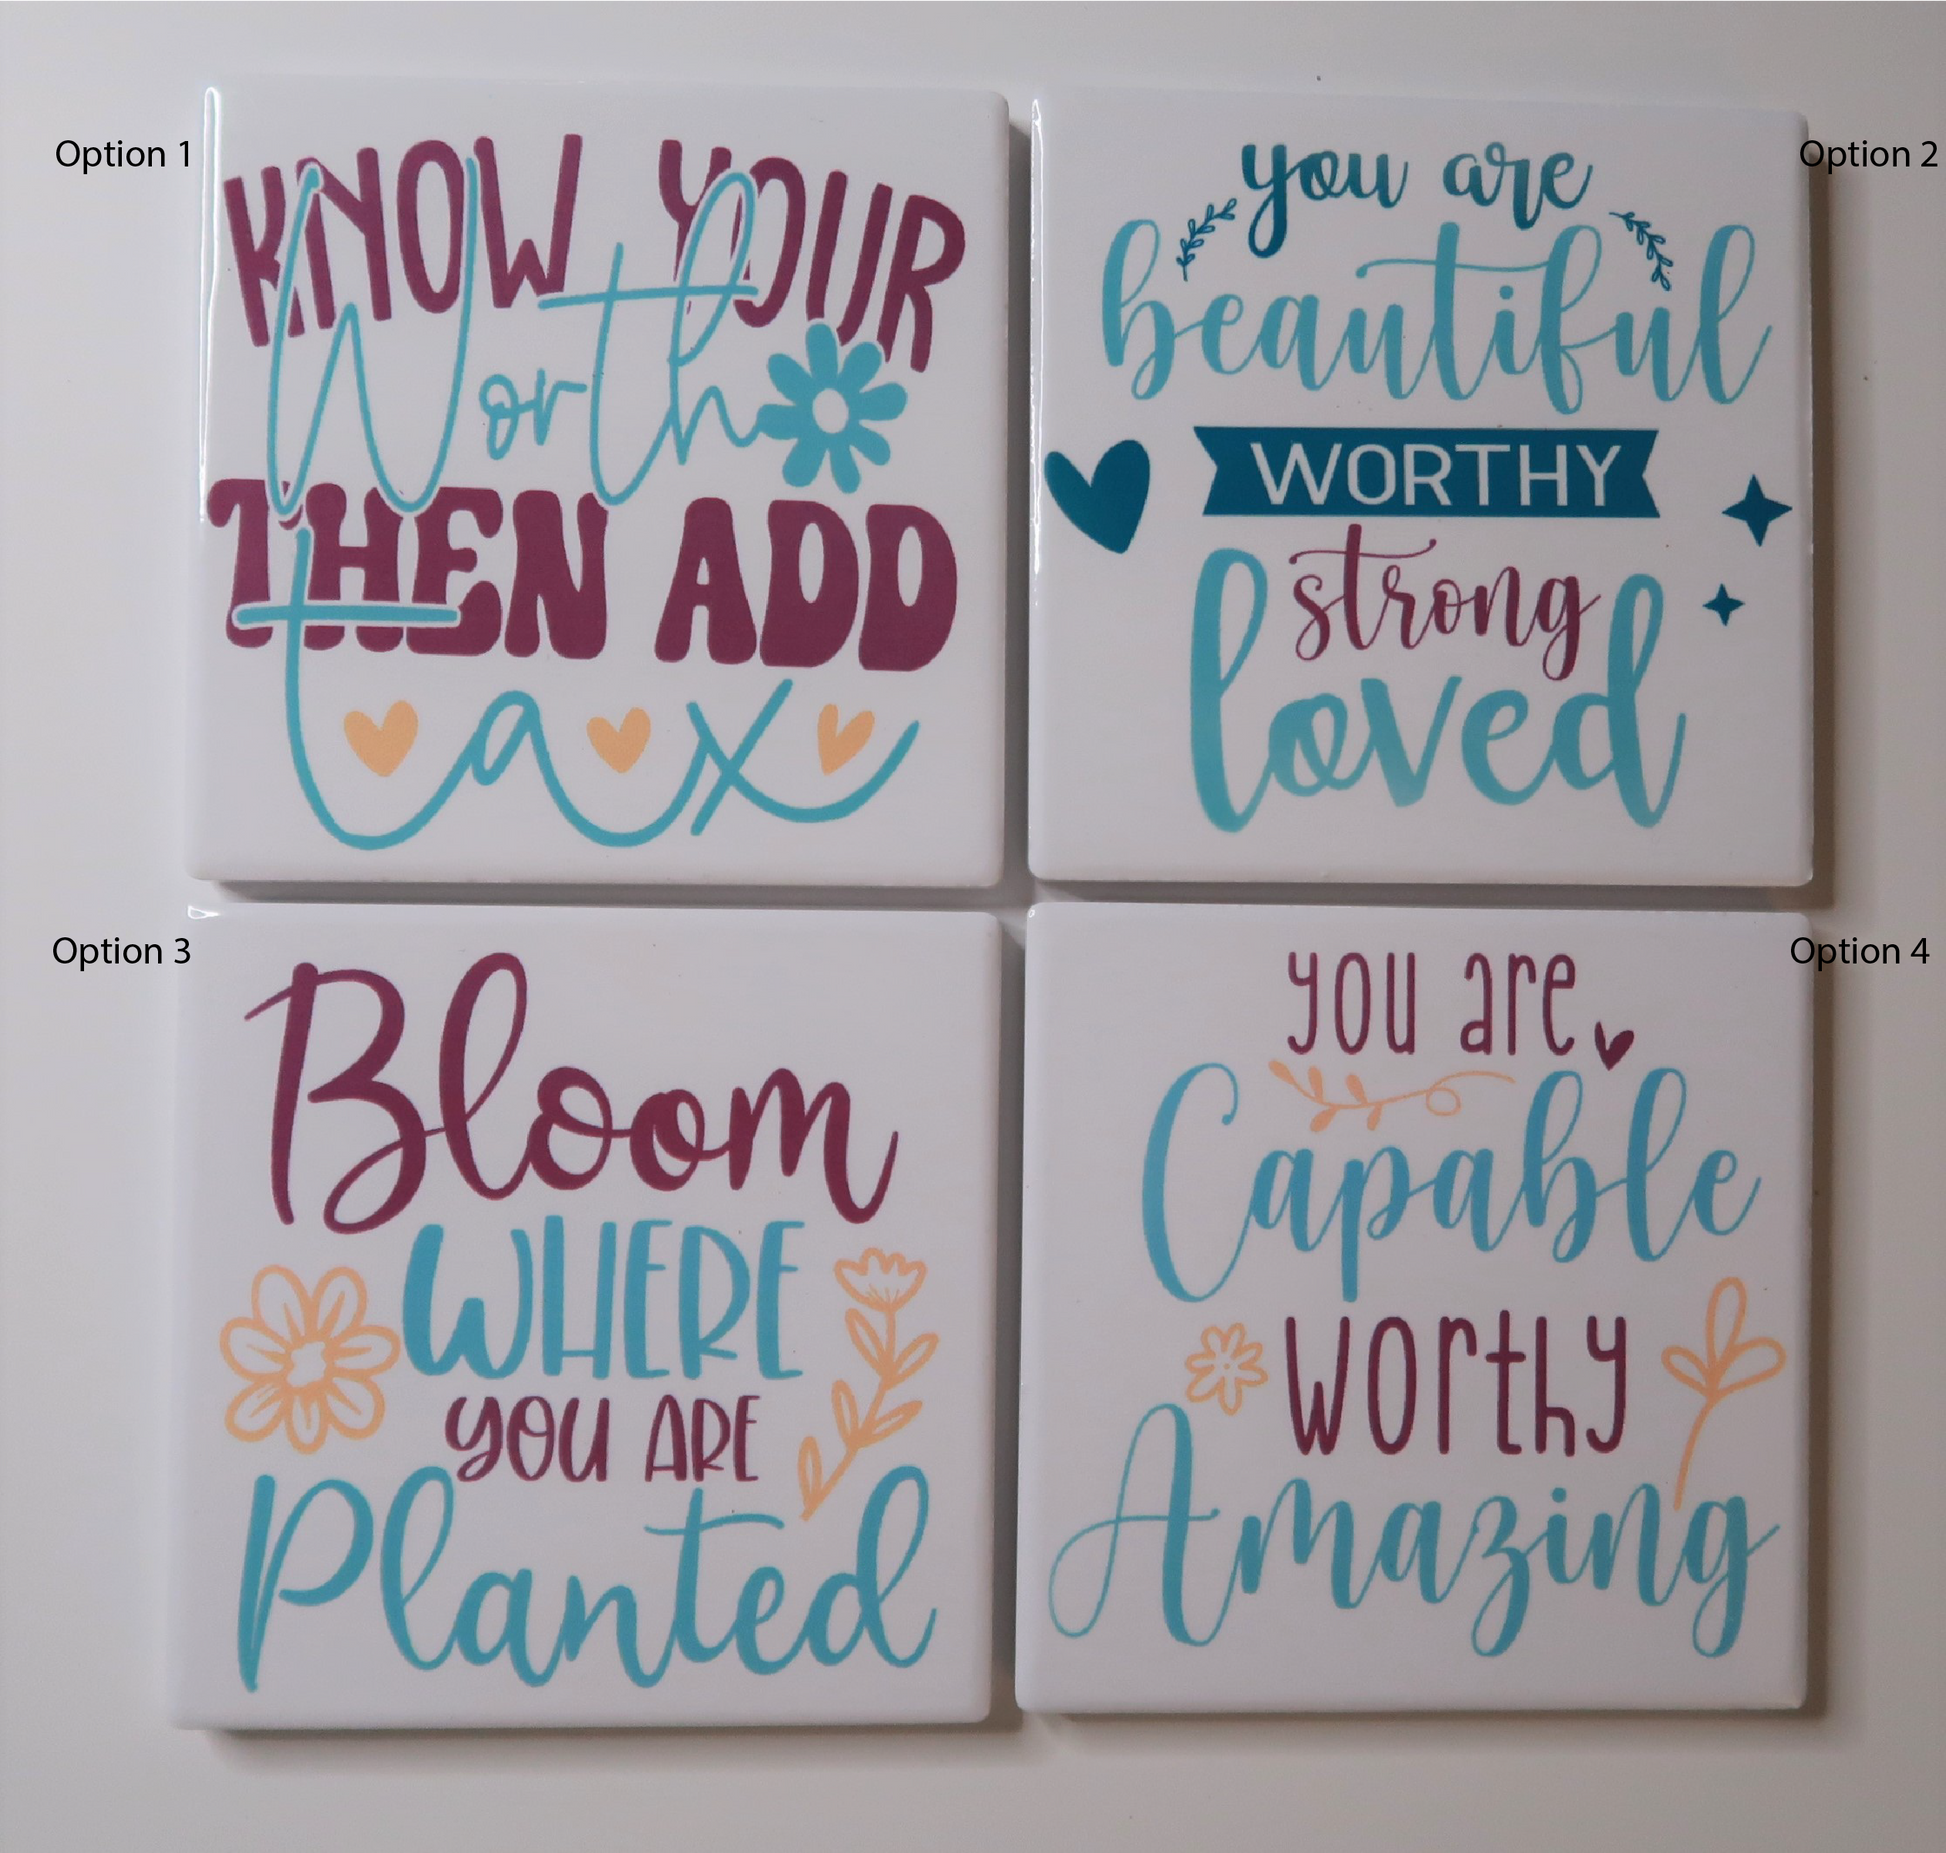 Option 1
KNOW YOUR
Worth
THEN ADD
tax
Option 2
you are
beautiful
WORTHY
strong
loved
Option 3
Bloom
WHERE
YOU ARE
Planted
Option 4
you are
Capable
worthy
Amazing